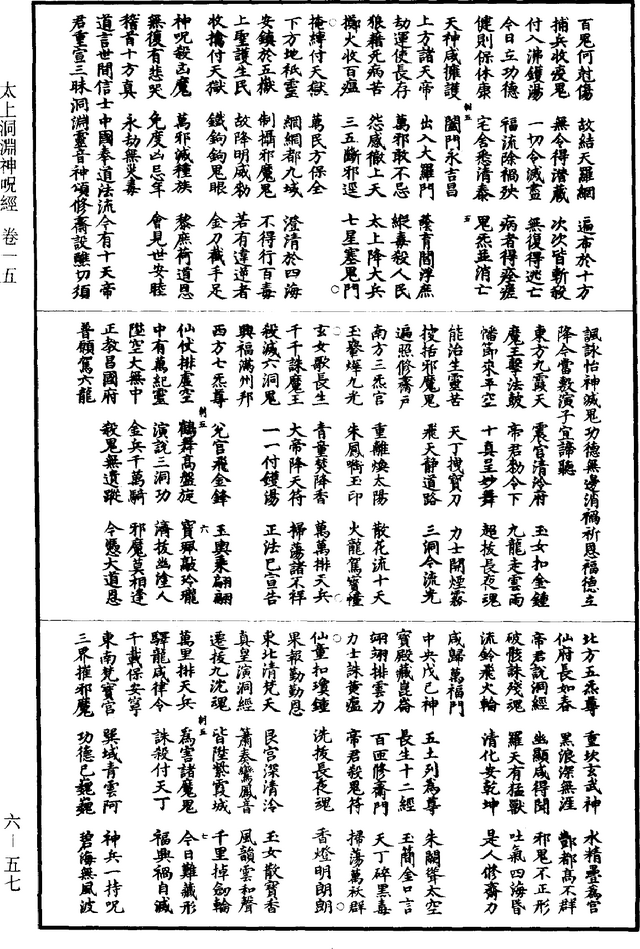 百鬼何敢傷 故結天羅網 遍布於十方
捕兵收疫鬼 無令得潛藏 次次皆斬殺
付入沸鑊湯 一切令滅盡 無復得逃亡
今日立功德 福流除禍殃 病者得瘳瘥
健則保休康 宅舍悉清泰 鬼炁並消亡
天神咸擁護 闔門永吉昌
上方諸天帝 出入大羅門 蔭育閻浮庶
劫運使長存 萬邪敢不忌 縱毒殺人民
狼藉死病苦 怨感徹上天 太上降大兵
擲火收百瘟 三五斷邪逕 七星塞鬼門
掩縛付天獄 萬民方保全
下方地祇靈 綱網都九域 澄清於四海
安鎮於五嶽 制攝邪魔鬼 不得行百毒
上聖護生民 故降明威勑 若有違逆者
收擒付天獄 鐵鉤鉤鬼眼 金刀截手足
神呪殺凶魔 萬邪滅種族 黎庶荷道恩
無復有悲哭 免度凶惡年 會見世安睦
稽首十方真 永劫無災毒
道言世間信士中國奉道法流今有十天帝
君重宣三昧洞淵靈音神頌修齋設醮切須
諷詠怡神滅鬼功德無邊消禍祈恩福德立
降今當敷演子宜諦聽
東方九霞天 震宮清冷府 玉女扣金鐘
魔王擊法鼓 帝君勑令下 九龍走雲雨
幡節來平空 十真呈妙舞 超拔長夜魂
能治生靈苦 天丁拽寶刀 力士開煙霧
按括邪魔鬼 飛天靜道路 三洞令流光
遍照修齋戶
南方三炁宮 重離煥太陽 散花流十天
玉臺燁九光 朱鳳啣玉印 火龍駕寶幢
玄女歌長生 青童焚降香 萬萬排天兵
千千誅魔王 大帝降天符 掃蕩諸不祥
殺滅六洞鬼 一一付鑊湯 正法已宣告
興福滿州邦
西方七炁尊 兌宮飛金鋒 玉輿乘翩翩
仙仗排虛空 鶴舞高盤旋 寶珮敲玲瓏
中有萬紀靈 演説三洞功 濟拔幽塗人
陛空大無中 金兵千萬騎 邪魔莫相逢
正教昌國府 殺鬼無遺蹤 今憑大道恩
普願駕六龍
北方五炁尊 重坎玄武神 水精疊高宮
仙府長如春 黑浪深無涯 酆都高不群
帝君説洞經 幽顯咸得聞 邪鬼不正形
破骸誅殘魂 羅天有猛獸 吐氣四海昏
流鈴飛火輪 清化安乾坤 是人修齋力
咸歸萬福門
中央戊己神 五土列為尊 朱闕聳太空
寶殿藏崑崙 長生十二經 玉簡金口言
翊翊排雲力 百匝修齋門 天丁碎黑毒
力士誅黃瘟 帝君殺鬼符 掃蕩萬妖群
仙童扣瓊鐘 洗拔長夜魂 香燈明朗朗
果報勤勤恩
東北清梵天 艮宮深清冷 玉女散寶香
真皇演洞經 蕭奏鸞鳳音 風韻雲和聲
遷拔九沈魂 皆陞紫霞城 千里掉劍輪
萬里排天兵 為害諸魔鬼 今日難藏形
驛龍咸律令 誅殺付天丁 福興禍自滅
千載保安寧
東南梵寶宮 巽域青雲阿 神兵一持呪
三界摧邪魔 功德已巍巍 碧海無風波
太上洞淵神呪經 卷一五
六—五七